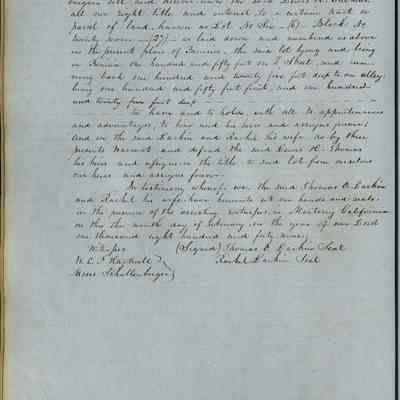 all our right title and interest to a certain tract or
parcel of land, known as Lot No Six - (6) - Block No
twenty seven - (27) - as laid down and numbered as above
in the present plan of Benicia, the said lot lying and being
in Benicia one hundred and fifty feet on I Street, and run-
ning back one hundred and twenty five feet deep to an alley,
being one hundred and fifty feet front, and one hundred
and twenty five feet deep
to have and to hold, with all its appurtenances
and advantages, to him and his heirs and assigns forever.
And we the said Larkin and Rachel his wife do by these
presents warrant and defend the said Lewis
his heirs and assigns in the title to said lot from ourselves
our heirs and assigns forever.
In testimony whereof we, the said Thomas O. Larkin
and Rachel his wife have hereunto set our hands and seals
in the presence of the assisting witnesses, in Monterey California
on this the ninth day of February, in the year of our Lord
one thousand eight hundred and forty nine
Witness (Signed) Thomas O. Larkin Seal
W. C. P. Hartnell Rachel Larkin Seal
Moses Schallenberger